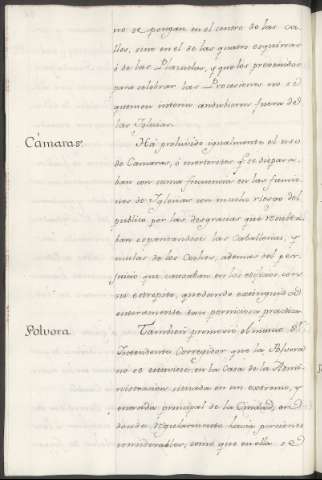 no se pongan en el centro de las ca
lles, sino en el de las quatro esquinas
ó de las Plazuelas, y que los prevenidos
para celebrar las Procesiones no se
quemen interin anduvieren fuera de
las Yglesias.
Cámaras. Ha prohivido igualmente el uso
de Camaras, ó morteretes qe. se dispara
ban con suma frecuencia en las funcio
nes de Yglesias con mucho riesgo del
publico por las desgracias que resulta
ban espantandose las Caballerias, y
mulas de los Coches, ademas del per
juicio que causaban en los edificios con
su estrepito, quedando extinguida
enteramente tan perniciosa practica.
Polvora. Tambien promovió el mismo Sr.
Yntendente Corregidor que la Polvora
no se estuviese en la Casa de la Admi
nistracion situada en un extremo, y
entrada principal de la Ciudad, en
donde regularmente havia porciones
considerables, como que en ella se